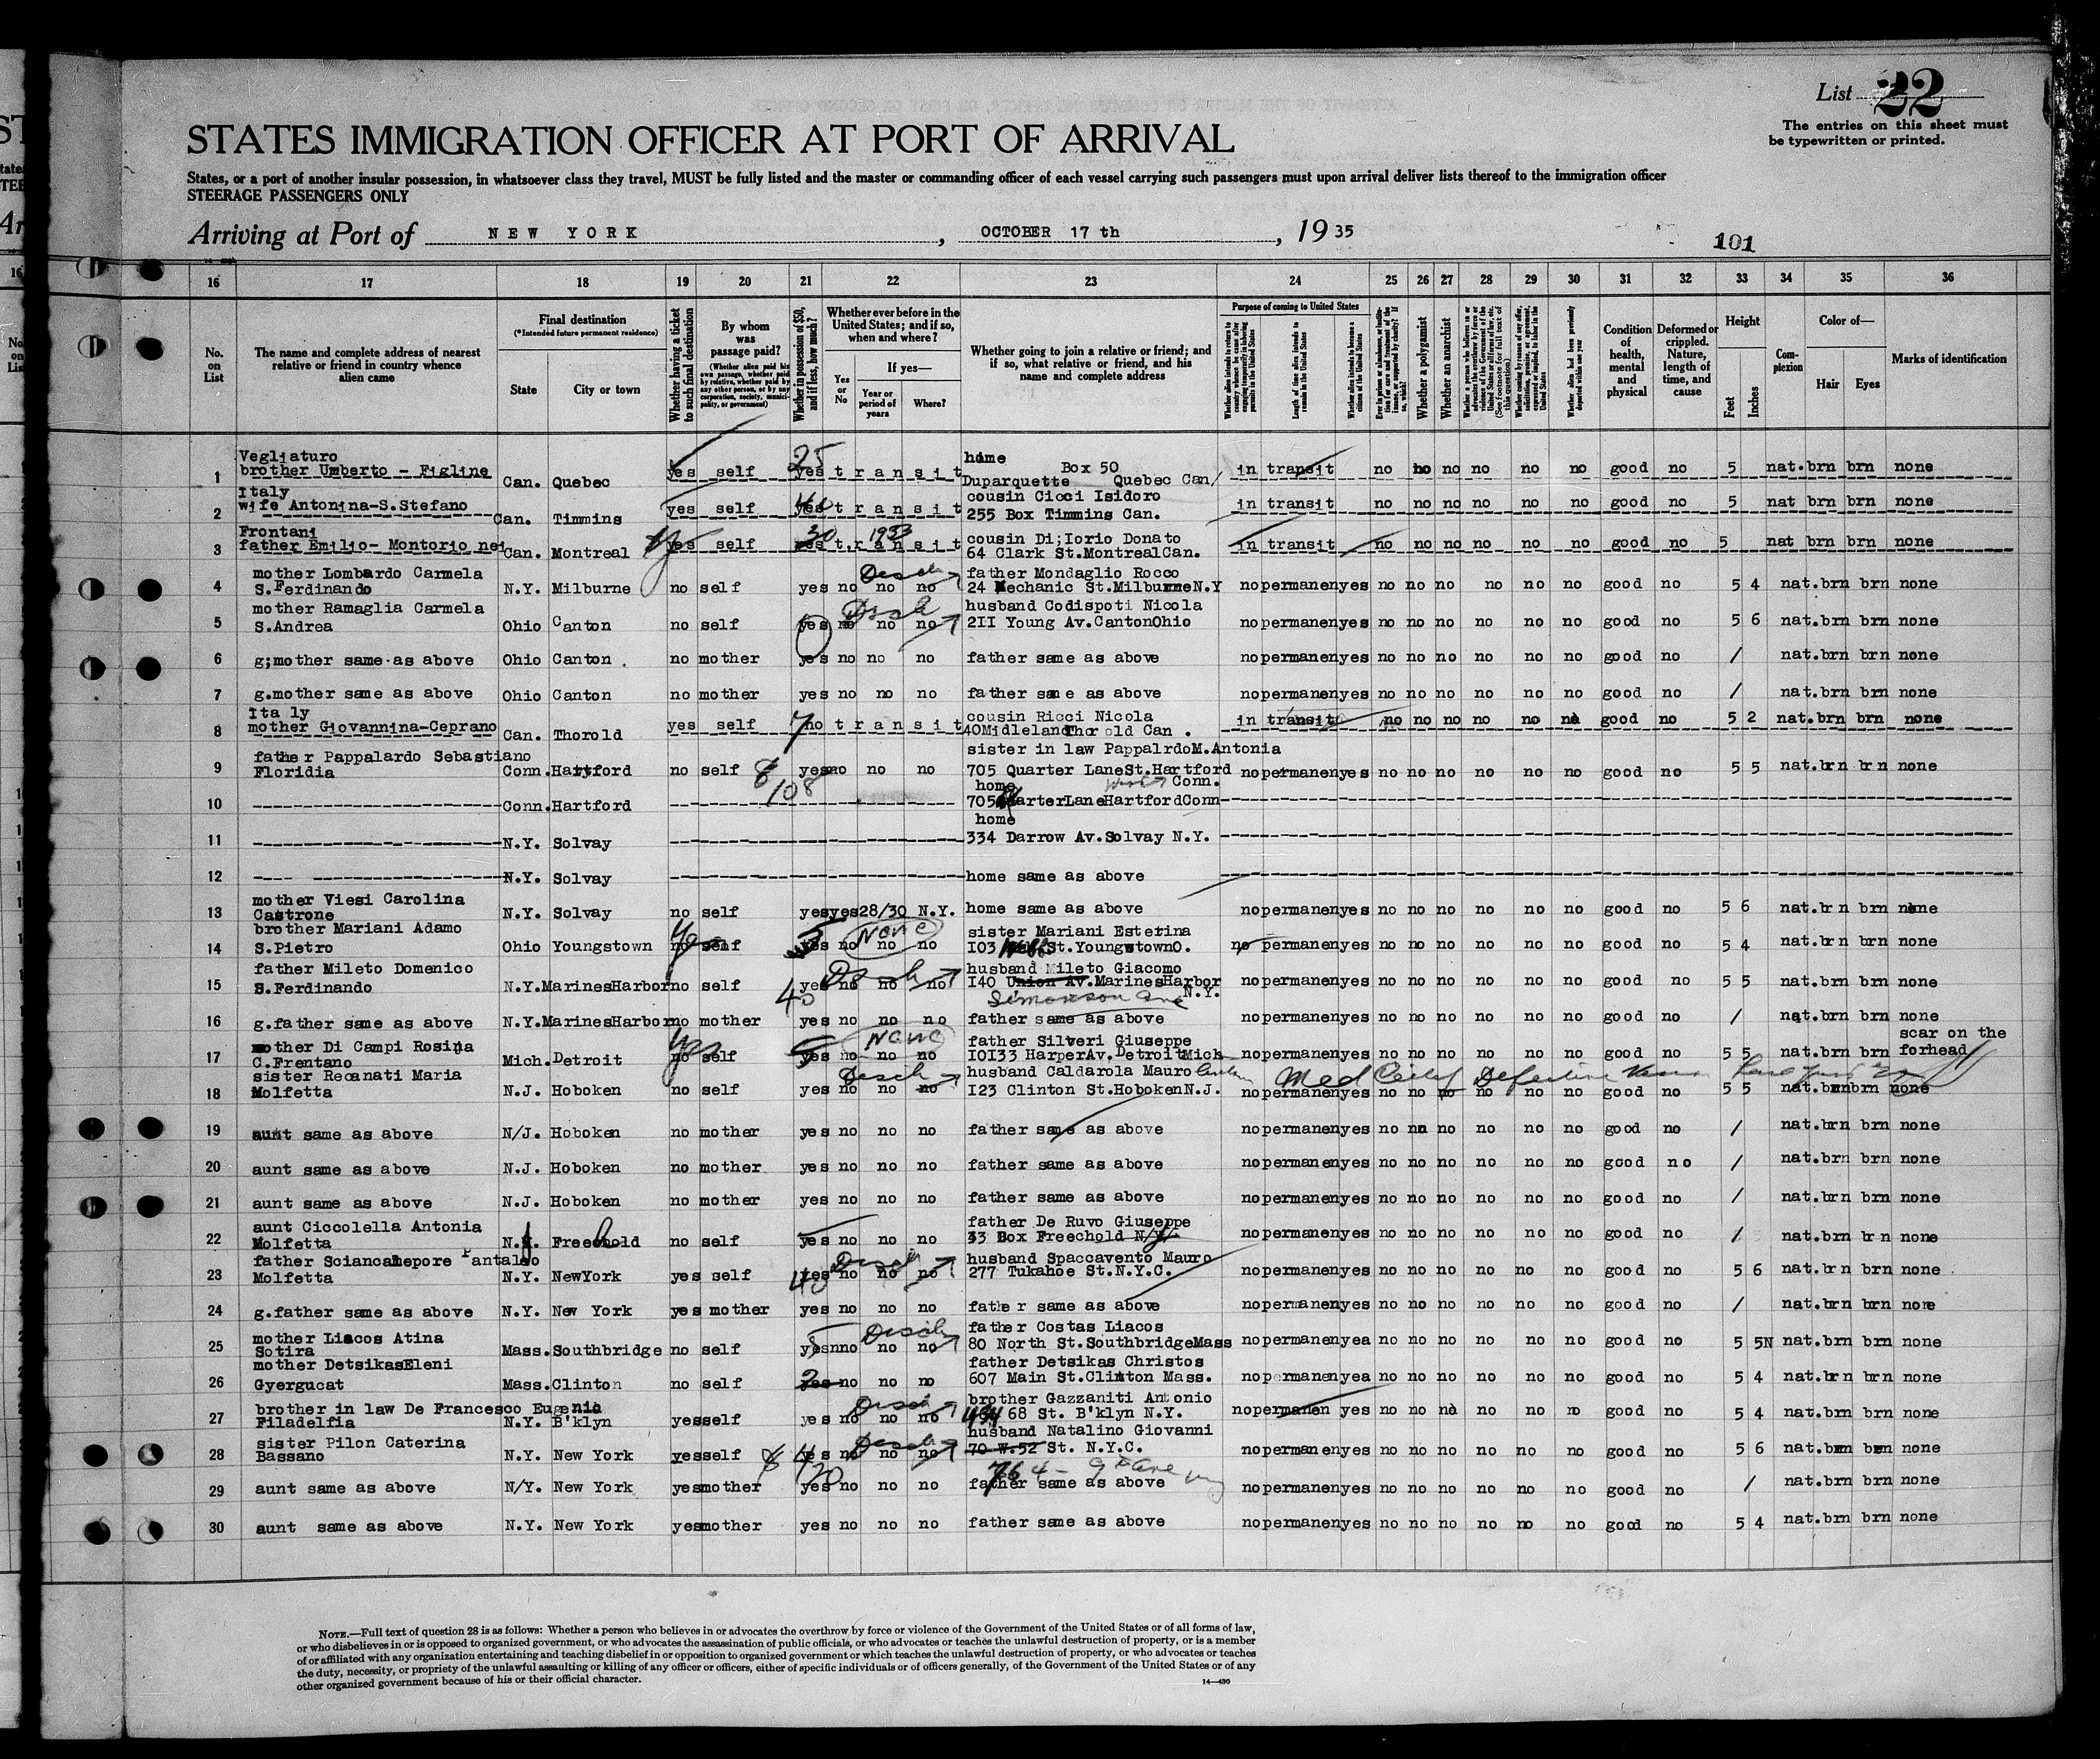 List 22
The entries on this sheet must
be typewritten or printed.
STATES IMMIGRATION OFFICER AT PORT OF ARRIVAL
States, or a port of another insular possession, in whatsoever class they travel, MUST be fully listed and the master or commanding officer of each vessel carrying such passengers must upon arrival deliver lists thereof to the immigration officer
STEERAGE PASSENGERS ONLY
Arriving at Port of NEW YORK, OCTOBER 17 th, 1935
101
16 17 18 19 20 21 22 23 24 25 26 27 28 29 30 31 32 33 34 35 36
No. on List
The name and complete address of nearest relative or friend in country whence alien came
Final destination
(*Intended future permanent residence)
State
City or town
Whether having a ticket to such final destination
By whom was passage paid?
(Whether alien paid his own passage, whether paid by relative, whether paid by any other person, or by any corporation, society, municipality, or government)
Whether in possession of $50, and if less, how much?
Whether ever before in the United States; and if so, when and where?
Yes or No
If yes—
Year or period of years
Where?
Whether going to join a relative or friend; and if so, what relative or friend, and his name and complete address
Purpose of coming to United States
Length of time alien intends to remain in the United States
Whether alien intends to become a citizen of the United States
Whether a polygamist
Whether an anarchist
Condition of health, mental and physical
Deformed or crippled. Nature, length of time, and cause
Height
Feet
Inches
Complexion
Color of—
Hair
Eyes
Marks of identification
Vegliaturo home
1 brother Umberto - Figline Can. Quebec yes self 25 yes transit Box 50 in transit no no no no no no good no 5 nat. brn brn none
Duparquette Quebec Can/
Italy cousin Cicci Isidoro
2 wife Antonina-S.Stefano Can. Timmins yes self yes transit 255 Box Timmins Can. in transit no no no no no no good no 5 nat brn brn none
Frontani cousin Di;Iorio Donato
3 father Emilio- Montorio nei Can. Montreal yes self 30 yes transit 1933 64 Clark St.Montreal Can. in transit no no no no no no good no 5 nat brn brn none
mother Lombardo Carmela father Mondaglio Rocco
4 S.Ferdinando N.Y. Milburne no self yes no no no 24 Mechanic St.Milburne N.Y no permanen yes no no no no no no good no 5 4 nat.brn brn none
mother Ramaglia Carmela husband Codispoti Nicola
5 S.Andrea Ohio Canton no self yes no no no 2II Young Av.Canton Ohio no permanen yes no no no no no no good no 5 6 nat.brn brn none
6 g;mother same as above Ohio Canton . no mother yes no no no father same as above no permanen yes no no no no no no good no / nat.brn brn none
7 g.mother same as above Ohio Canton no mother yes no no no father same as above no permanen yes no no no no no no good no / nat.brn brn none
Italy cousin Ricci Nicola
8 mother Giovannina-Ceprano Can. Thorold yes self 7 no transit 40 Midleland Thorold Can . in transit no no no no no no good no 5 2 nat.brn brn none
father Pappalardo Sebastiano sister in law Pappalrdo M.Antonia
9 Floridia Conn. Hartford no self 8/108 yes no no no 705 Quarter Lane St.Hartford Conn. no permanen yes no no no no no no good no 5 5 nat.brn brn none
home
10 Conn. Hartford 705 Quarter Lane Hartford Conn
home
11 N.Y. Solvay 334 Darrow Av.Solvay N.Y.
12 N.Y. Solvay home same as above
mother Viesi Carolina
13 Castrone N.Y. Solvay no self yes yes 28/30 N.Y. home same as above no permanen yes no no no no no no good no 5 6 nat.brn brn none
brother Mariani Adamo sister Mariani Esterina
14 S.Pietro Ohio Youngstown no yes self 5 yes no no no None I03 St.Youngstown O. no permanen yes no no no no no no good no 5 4 nat.brn brn none
father Mileto Domenico husband Mileto Giacomo
15 S.Ferdinando N.Y. Marines Harbor no self 40 yes no no no I40 Union Av.Marines Harbor N.Y. no permanen yes no no no no no no good no 5 5 nat.brn brn none
Simonson ave
16 g.father same as above N.Y. Marines Harbor no mother yes no no no father same as above no permanen yes no no no no no no good no / nat.brn brn none
mother Di Campi Rosina father Silveri Giuseppe scar on the
17 C.Frentano Mich. Detroit no yes self 5 yes no no no None I0I33 Harper Av.Detroit Mich no permanen yes no no no no no no good no 5 5 nat.brn brn forhead
sister Recanati Maria husband Caldarola Mauro Med Defective
18 Molfetta N.J. Hoboken no self yes no no no I23 Clinton St.Hoboken N.J. no permanen yes no no no no no no good no 5 5 nat.brn brn none
19 aunt same as above N/J. Hoboken no mother yes no no no father same as above no permanen yes no no no no no no good no / nat.brn brn none
20 aunt same as above N.J. Hoboken no mother yes no no no father same as above no permanen yes no no no no no no good no / nat.brn brn none
21 aunt same as above N.J. Hoboken no mother yes no no no father same as above no permanen yes no no no no no no good no / nat.brn brn none
aunt Ciccolella Antonia father De Ruvo Giuseppe
22 Molfetta N.J. Freehold no self yes no no no 33 Box Freechold N/J. no permanen yes no no no no no no good no / nat.brn brn none
father Sciancalepore Pantaleo husband Spaccavento Mauro
23 Molfetta N.Y. NewYork yes self 40 yes no no no 277 Tukahoe St.N.Y.C. no permanen yes no no no no no no good no 5 6 nat.brn brn none
24 g.father same as above N.Y. New York yes mother yes no no no father same as above no permanen yes no no no no no no good no / nat.brn brn none
mother Liacos Atina father Costas Liacos
25 Sotira Mass. Southbridge no self yes no no no 80 North St.Southbridge Mass no permanen yea no no no no no no good no 5 5N nat.brn brn none
mother Detsikas Eleni father Detsikas Christos
26 Gyergucat Mass. Clinton no self 2 yes no no no 607 Main St.Clinton Mass. no permanen yea no no no no no no good no 5 4 nat.brn brn none
brother in law De Francesco Eugenio brother Gazzaniti Antonio
27 Filadelfia N.Y. B'klyn yes self yes no no no 68 St. B'klyn N.Y. no permanen yes no no no no no no good no 5 4 nat.brn brn none
sister Pilon Caterina husband Natalino Giovanni
28 Bassano N.Y. New York yes self yes no no no 70 W.52 St. N.Y.C. no permanen yes no no no no no no good no 5 6 nat.brn brn none
764 - 9th ave
29 aunt same as above N/Y. New York yes mother yes no no no father same as above no permanen yes no no no no no no good no / nat.brn brn none
30 aunt same as above N.Y. New York yes mother yes no no no father same as above no permanen yes no no no no no no good no 5 4 nat.brn brn none
NOTE.—Full text of question 28 is as follows: Whether a person who believes in or advocates the overthrow by force or violence of the Government of the United States or of all forms of law,
or who disbelieves in or is opposed to organized government, or who advocates the assassination of public officials, or who advocates or teaches the unlawful destruction of property, or is a member
of or affiliated with any organization entertaining and teaching disbelief in or opposition to organized government or which teaches the unlawful destruction of property, or who advocates or teaches
the duty, necessity, or propriety of the unlawful assaulting or killing of any officer or officers, either of specific individuals or of officers generally, of the Government of the United States or of any
other organized government because of his or their official character.
14—430